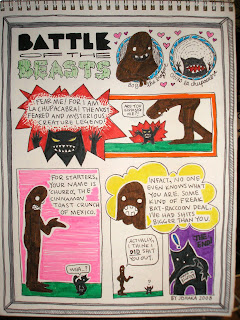 BATTLE
OF THE
BEASTS
FEAR ME! FOR I AM
LA CHUPACABRA! THE MOST
FEARED AND MYSTERIOUS
CREATURE LEGEND
ARE YOU
KIDDING
ME?!
FOR STARTERS,
YOUR NAME IS
CHURRO, THE
CINNAMON
TOAST CRUNCH
OF MEXICO.
WHA..?
INFACT, NO ONE
EVEN KNOWS WHAT
YOU ARE. SOME
KIND OF FREAK
BAT-RACCOON DEAL.
I'VE HAD SHITS
BIGGER THAN YOU
ACTUALLY,
I THINK I
DID SHIT
YOU OUT.
THE
END
2008